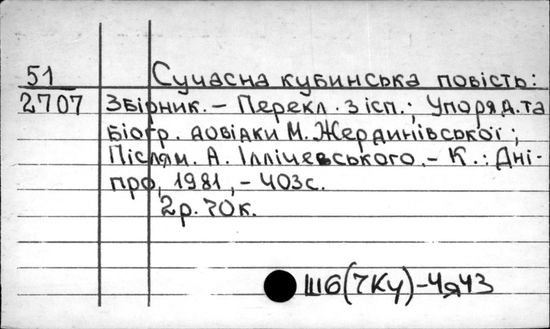 51 Сучасна кубинська повість:
2707 Збірник. – Перекл. з ісп.; Упоряд. та
біогр. довідки М. Жердинівської;
Післям. А. Іллічевського. – К.: Дні-
про, 1981, – 403с.
2р. 70к.
Ш6(7Ку)-4я43